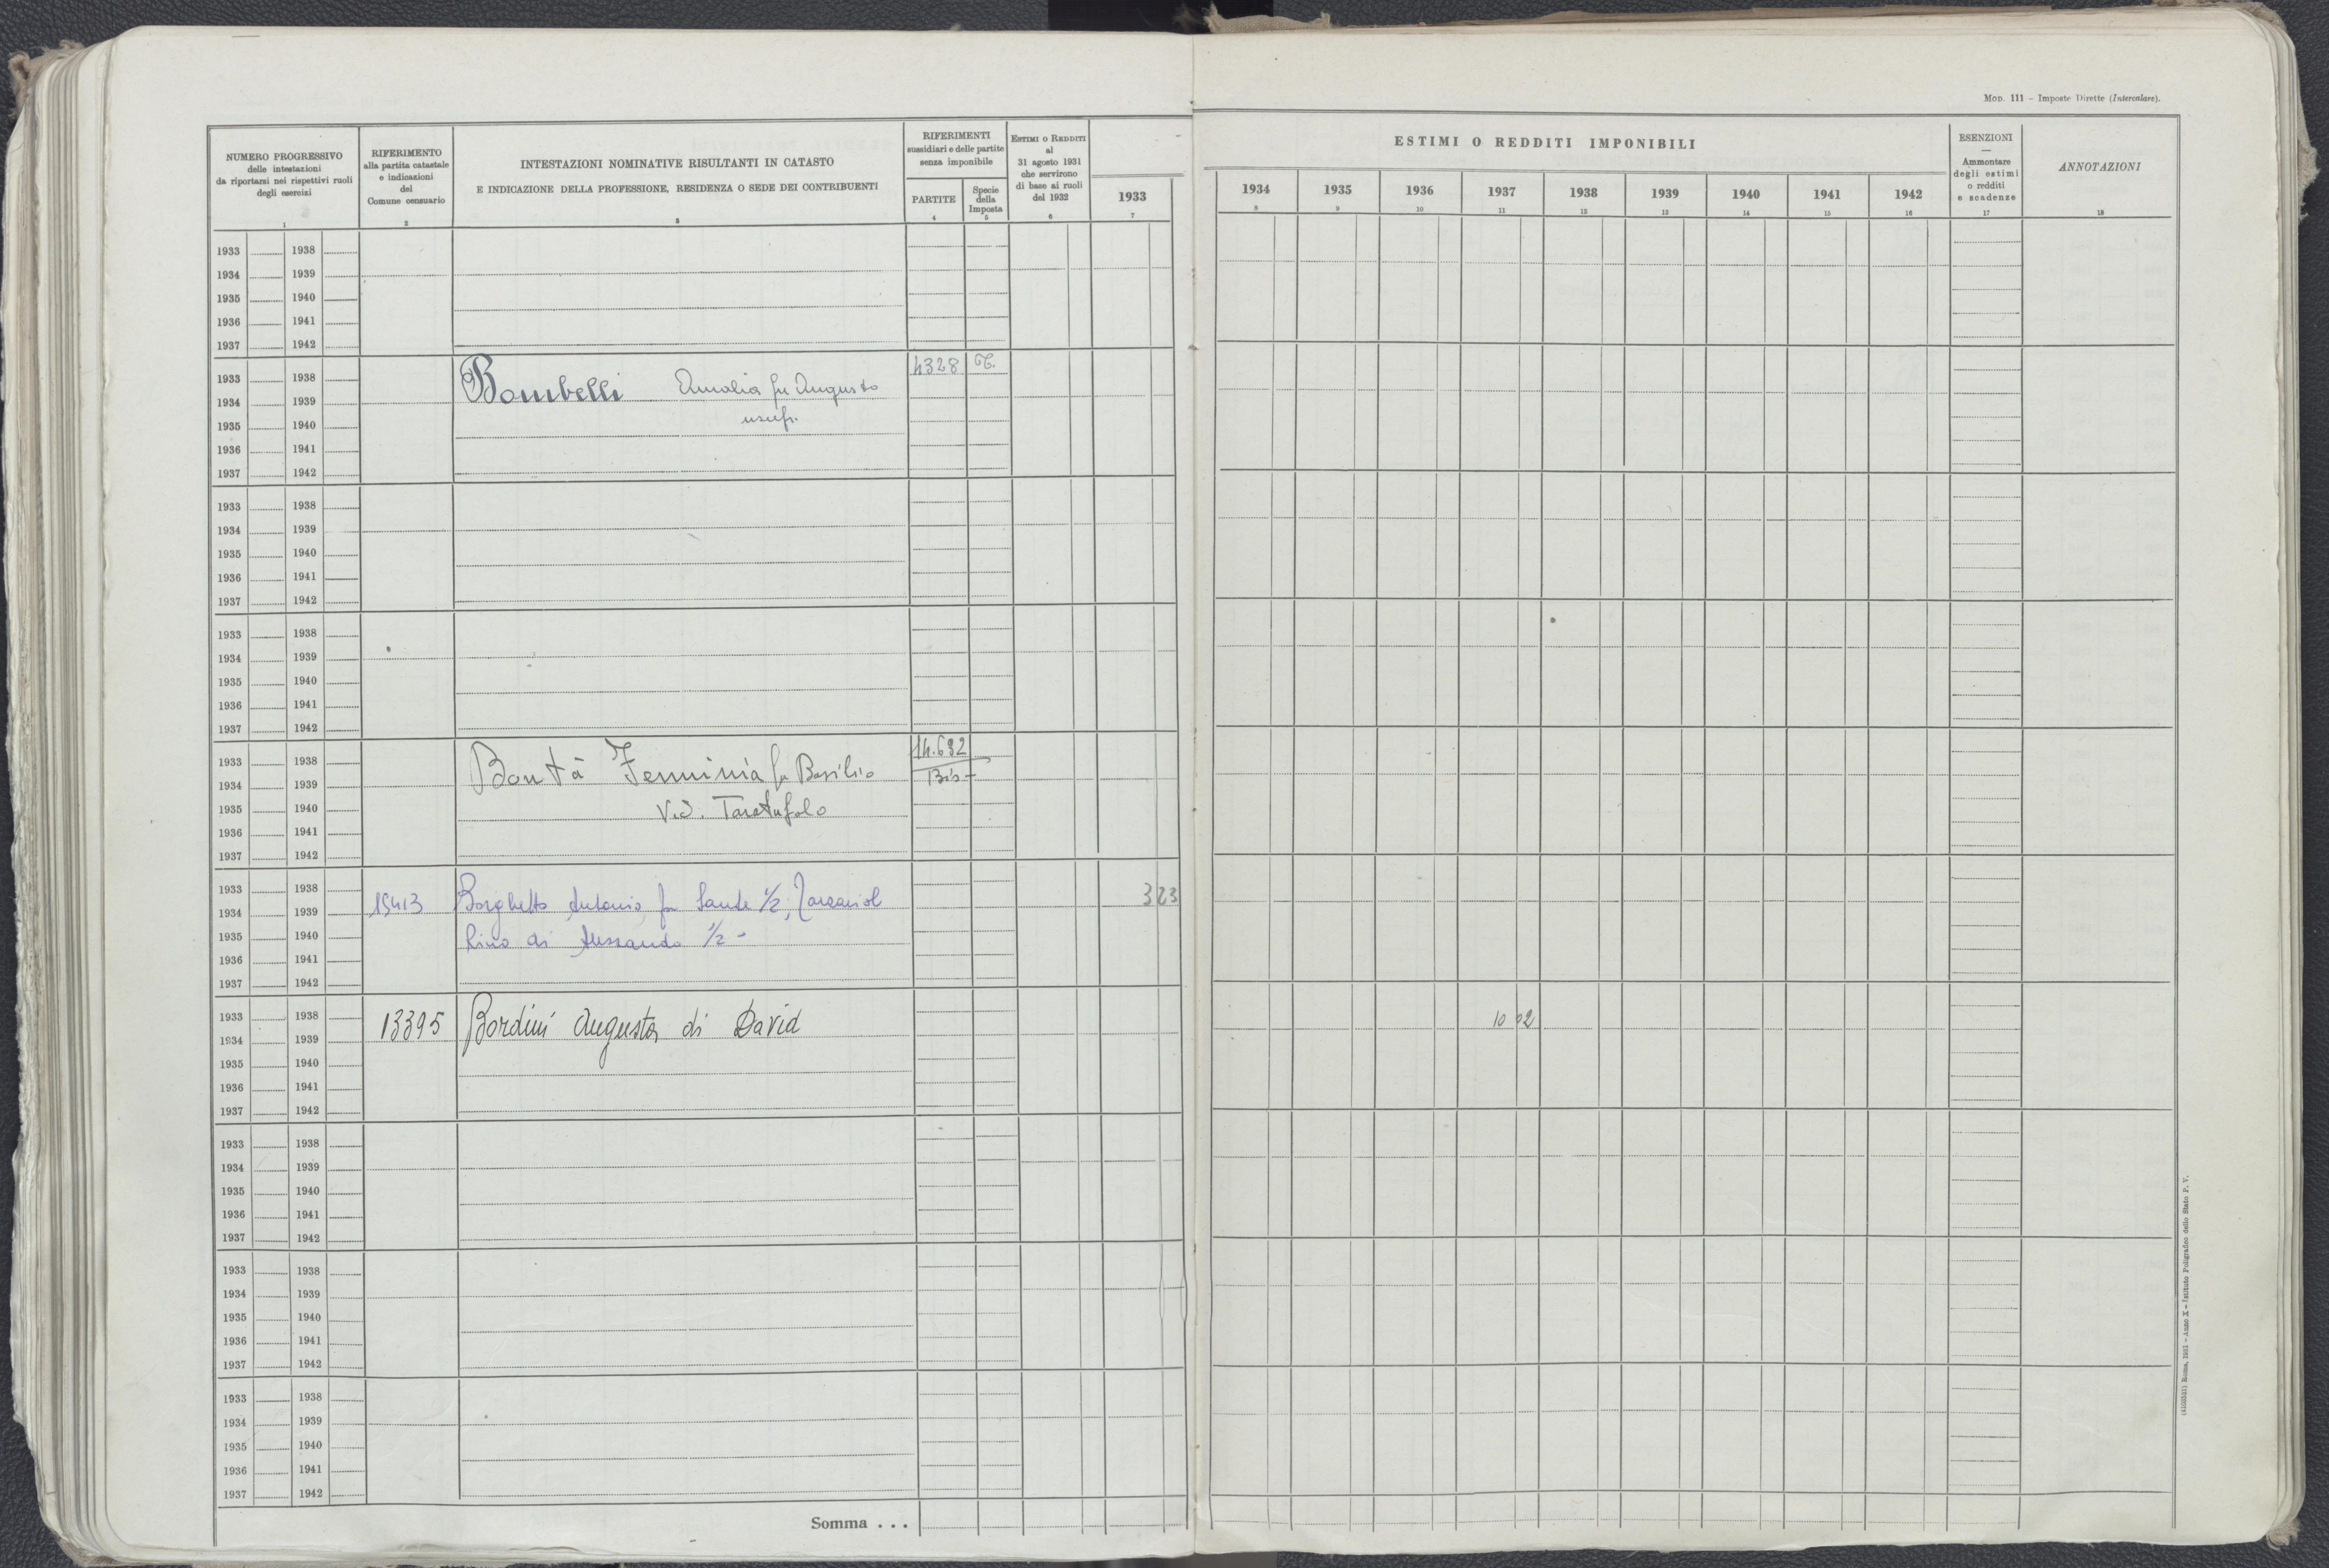 Mod. 111 - Imposte Dirette (Intercalare).
NUMERO PROGRESSIVO
delle intestazioni
da riportarsi nei rispettivi ruoli
degli esercizi
1
RIFERIMENTO
alla partita catastale
e indicazioni
del
Comune censuario
2
INTESTAZIONI NOMINATIVE RISULTANTI IN CATASTO
E INDICAZIONE DELLA PROFESSIONE, RESIDENZA O SEDE DEI CONTRIBUENTI
3
RIFERIMENTI
sussidiari e delle partite
senza imponibile
PARTITE
4
Specie
della
Imposta
5
Estimi o Redditi
al
31 agosto 1931
che servirono
di base ai ruoli
del 1932
6
1933
7
ESTIMI O REDDITI IMPONIBILI
1934 1935 1936 1937 1938 1939 1940 1941 1942
8 9 10 11 12 13 14 15 16
ESENZIONI
—
Ammontare
degli estimi
o redditi
e scadenze
17
ANNOTAZIONI
18
1933 1938
1934 1939
1935 1940
1936 1941
1937 1942
1933 1938
1934 1939
1935 1940
1936 1941
1937 1942
Bombelli Amalia fu Augusto
usuf.
4328 T.
1933 1938
1934 1939
1935 1940
1936 1941
1937 1942
1933 1938
1934 1939
1935 1940
1936 1941
1937 1942
1933 1938
1934 1939
1935 1940
1936 1941
1937 1942
Bontà Femminia fu Basilio
Ved. Taratufolo
14.692
Bis
1933 1938
1934 1939
1935 1940
1936 1941
1937 1942
15413 Borghetto Antonio fu Sante 1/2;
Lino di 1/2 -
3 23
1933 1938
1934 1939
1935 1940
1936 1941
1937 1942
13395 Bordini Augusta di David
10 02
1933 1938
1934 1939
1935 1940
1936 1941
1937 1942
1933 1938
1934 1939
1935 1940
1936 1941
1937 1942
1933 1938
1934 1939
1935 1940
1936 1941
1937 1942
Somma . . .
Roma, 1931 - Anno X - Istituto Poligrafico dello Stato P. V.